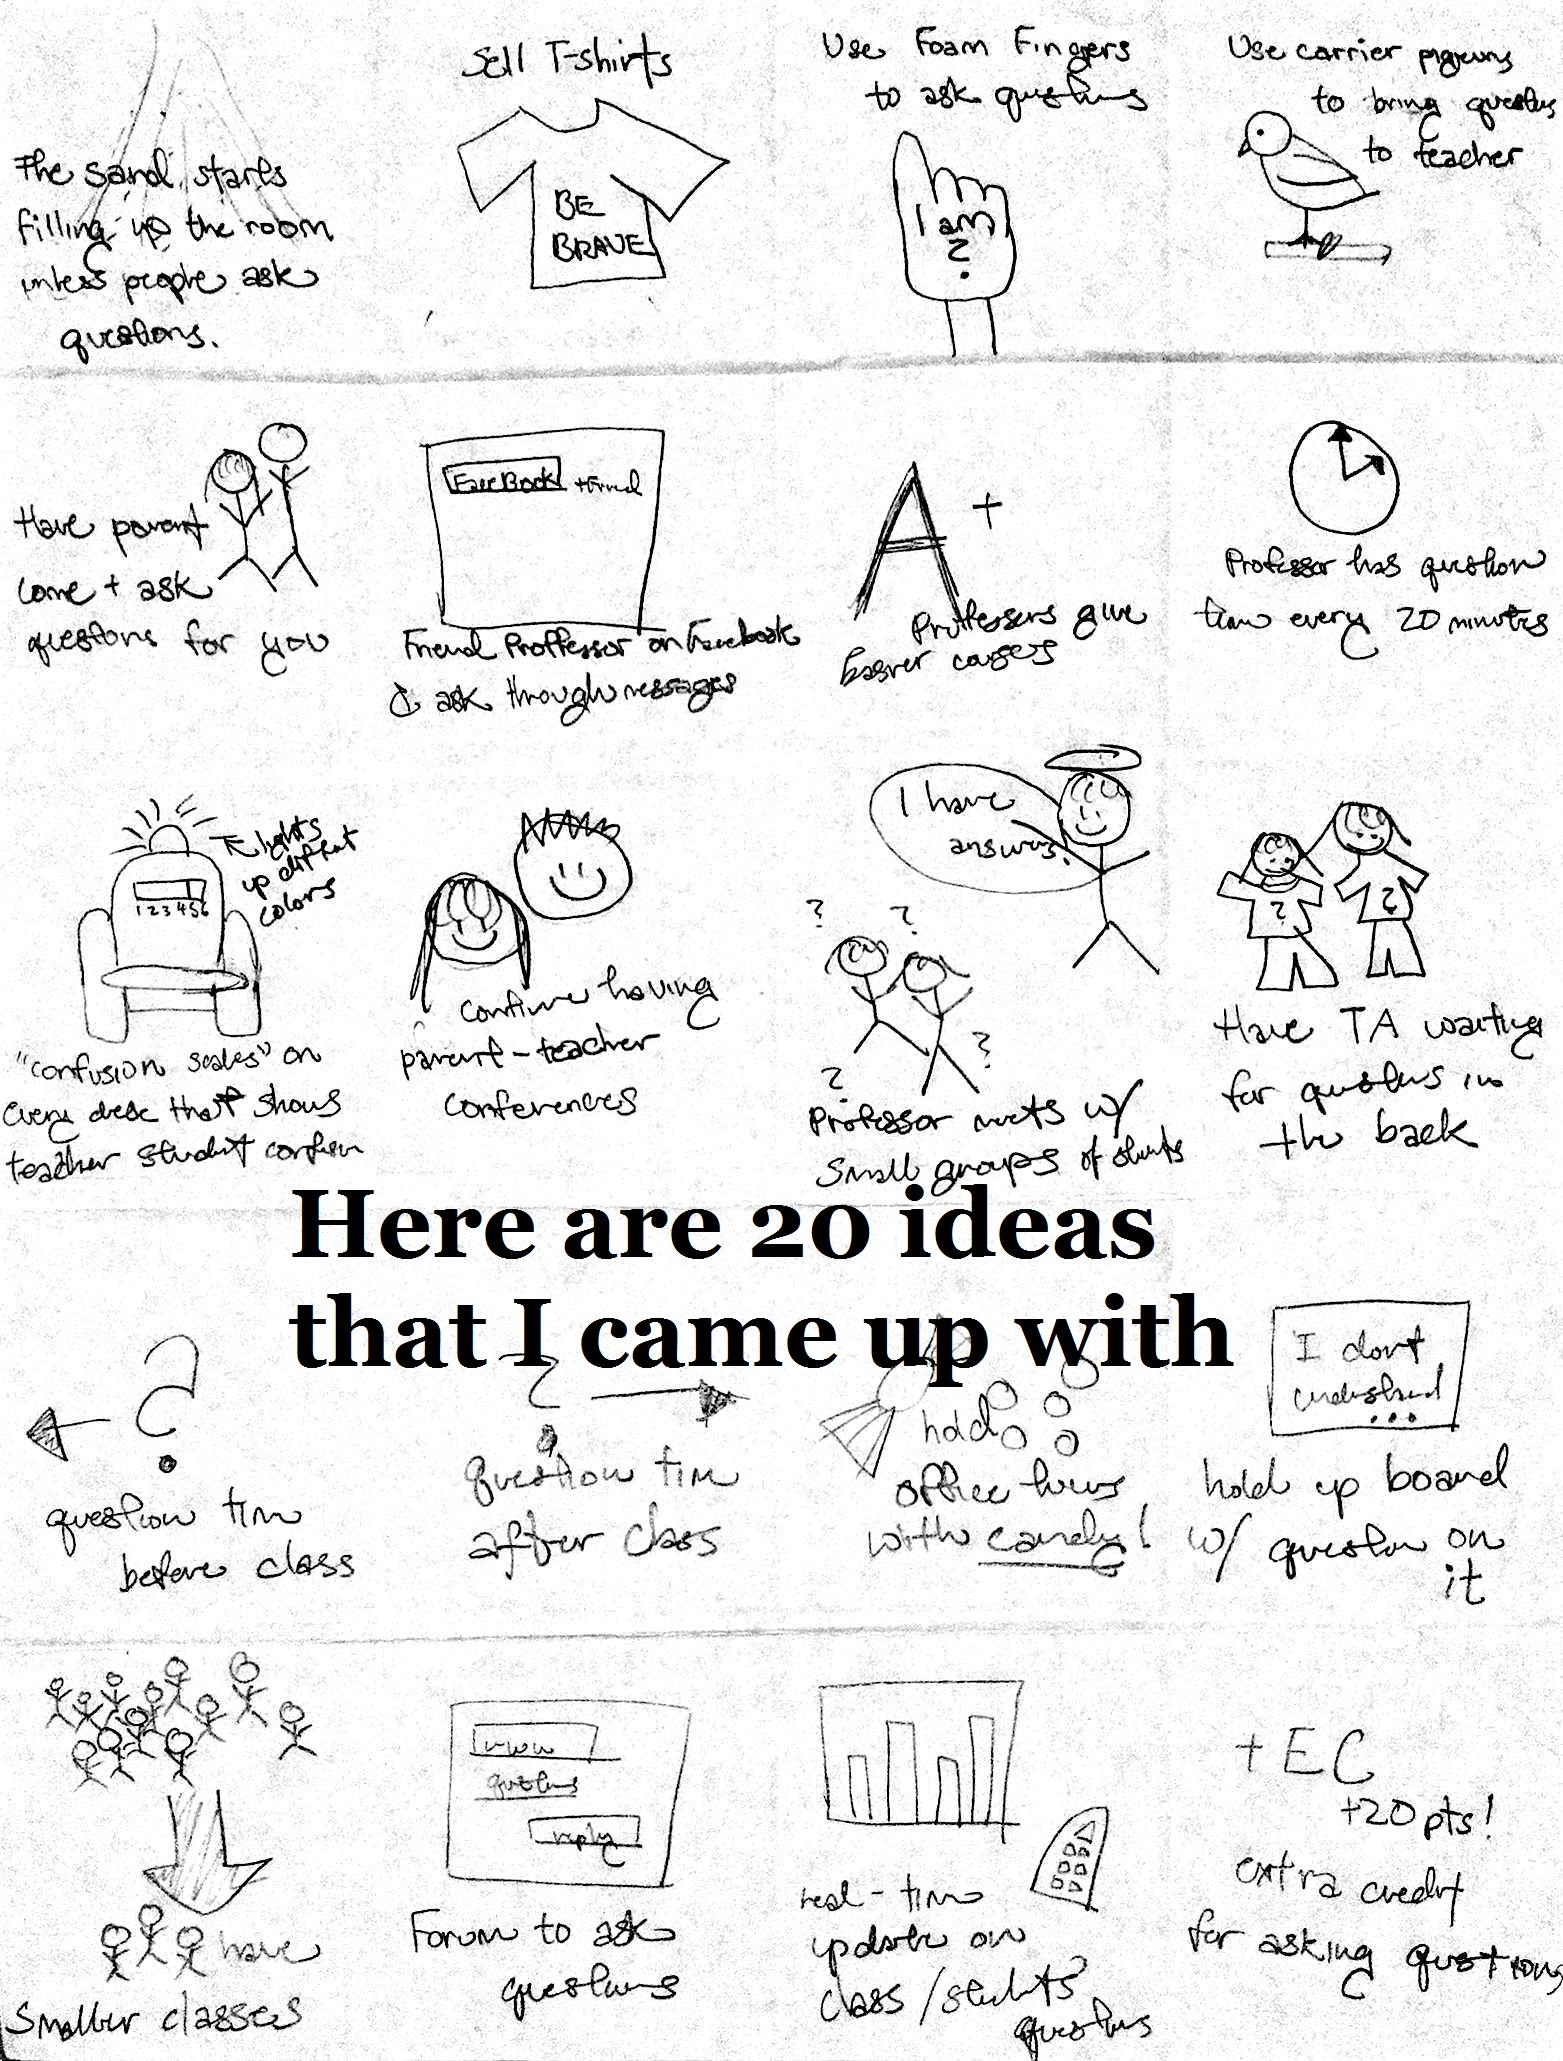 The sand starts
filling up the room
unless people ask
questions.
Sell T-shirts
BE
BRAVE
Use Foam Fingers
to ask questions
I am
?
Use carrier pigeons
to bring questions
to teacher
Have parent
come + ask
questions for you
FaceBook +Friend
Friend Proffessor on Facebook
& ask through messages
A+
Proffessors give
Easier courses
Professor has question
time every 20 minutes
lights
up different
colors
1 2 3 4 5 6
"confusion scales" on
every desk that shows
teacher student confusion
Continue having
parent-teacher
conferences
I have
answers!
? ?
? ?
Professor meets w/
small groups of students
? ?
Have TA waiting
for questions in
the back
Here are 20 ideas
that I came up with
?
question time
before class
?
question time
after class
hold
office hours
with candy!
I don't
understand
...
hold up board
w/ question on
it
have
smaller classes
www
questions
reply
Forum to ask
questions
real-time
update on
class/students'
questions
+EC
+20 pts!
extra credit
for asking questions